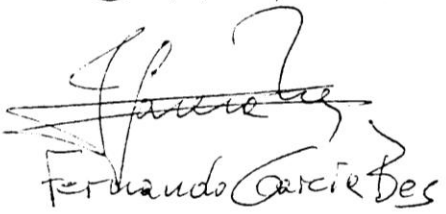 Fernando Garcia Bes